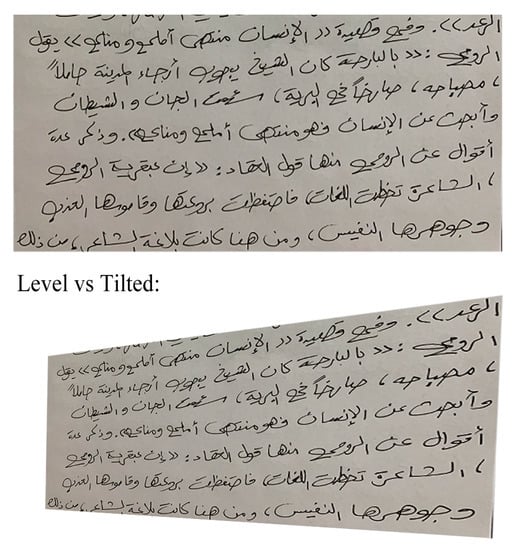 الرعد>>. وفي قصيدة << الإنسان منتهى أملي ومناي>> يقول
الرومي : << بالبارحة كان الشيخ يجوب أرجاء المدينة حاملاً
مصباحه ، صارخاً في البرية ، سئمت الجان والشيطان
وأبحث عن الإنسان فهو منتهى أملي ومناي>>. وذكر عدة
أقوال عن الرومي منها قول العقاد : << إن عبقرية الرومي
الشاعرة تخطت اللغات ، فاحتفظت بروعتها وقاموسها العذب
وجوهرها النفيس ، ومن هنا كانت بلاغة الشاعر ، من ذلك
Level vs Tilted:
الرعد>>. وفي قصيدة << الإنسان منتهى أملي ومناي>> يقول
الرومي : << بالبارحة كان الشيخ يجوب أرجاء المدينة حاملاً
مصباحه ، صارخاً في البرية ، سئمت الجان والشيطان
وأبحث عن الإنسان فهو منتهى أملي ومناي>>. وذكر عدة
أقوال عن الرومي منها قول العقاد : << إن عبقرية الرومي
الشاعرة تخطت اللغات ، فاحتفظت بروعتها وقاموسها العذب
وجوهرها النفيس ، ومن هنا كانت بلاغة الشاعر ، من ذلك